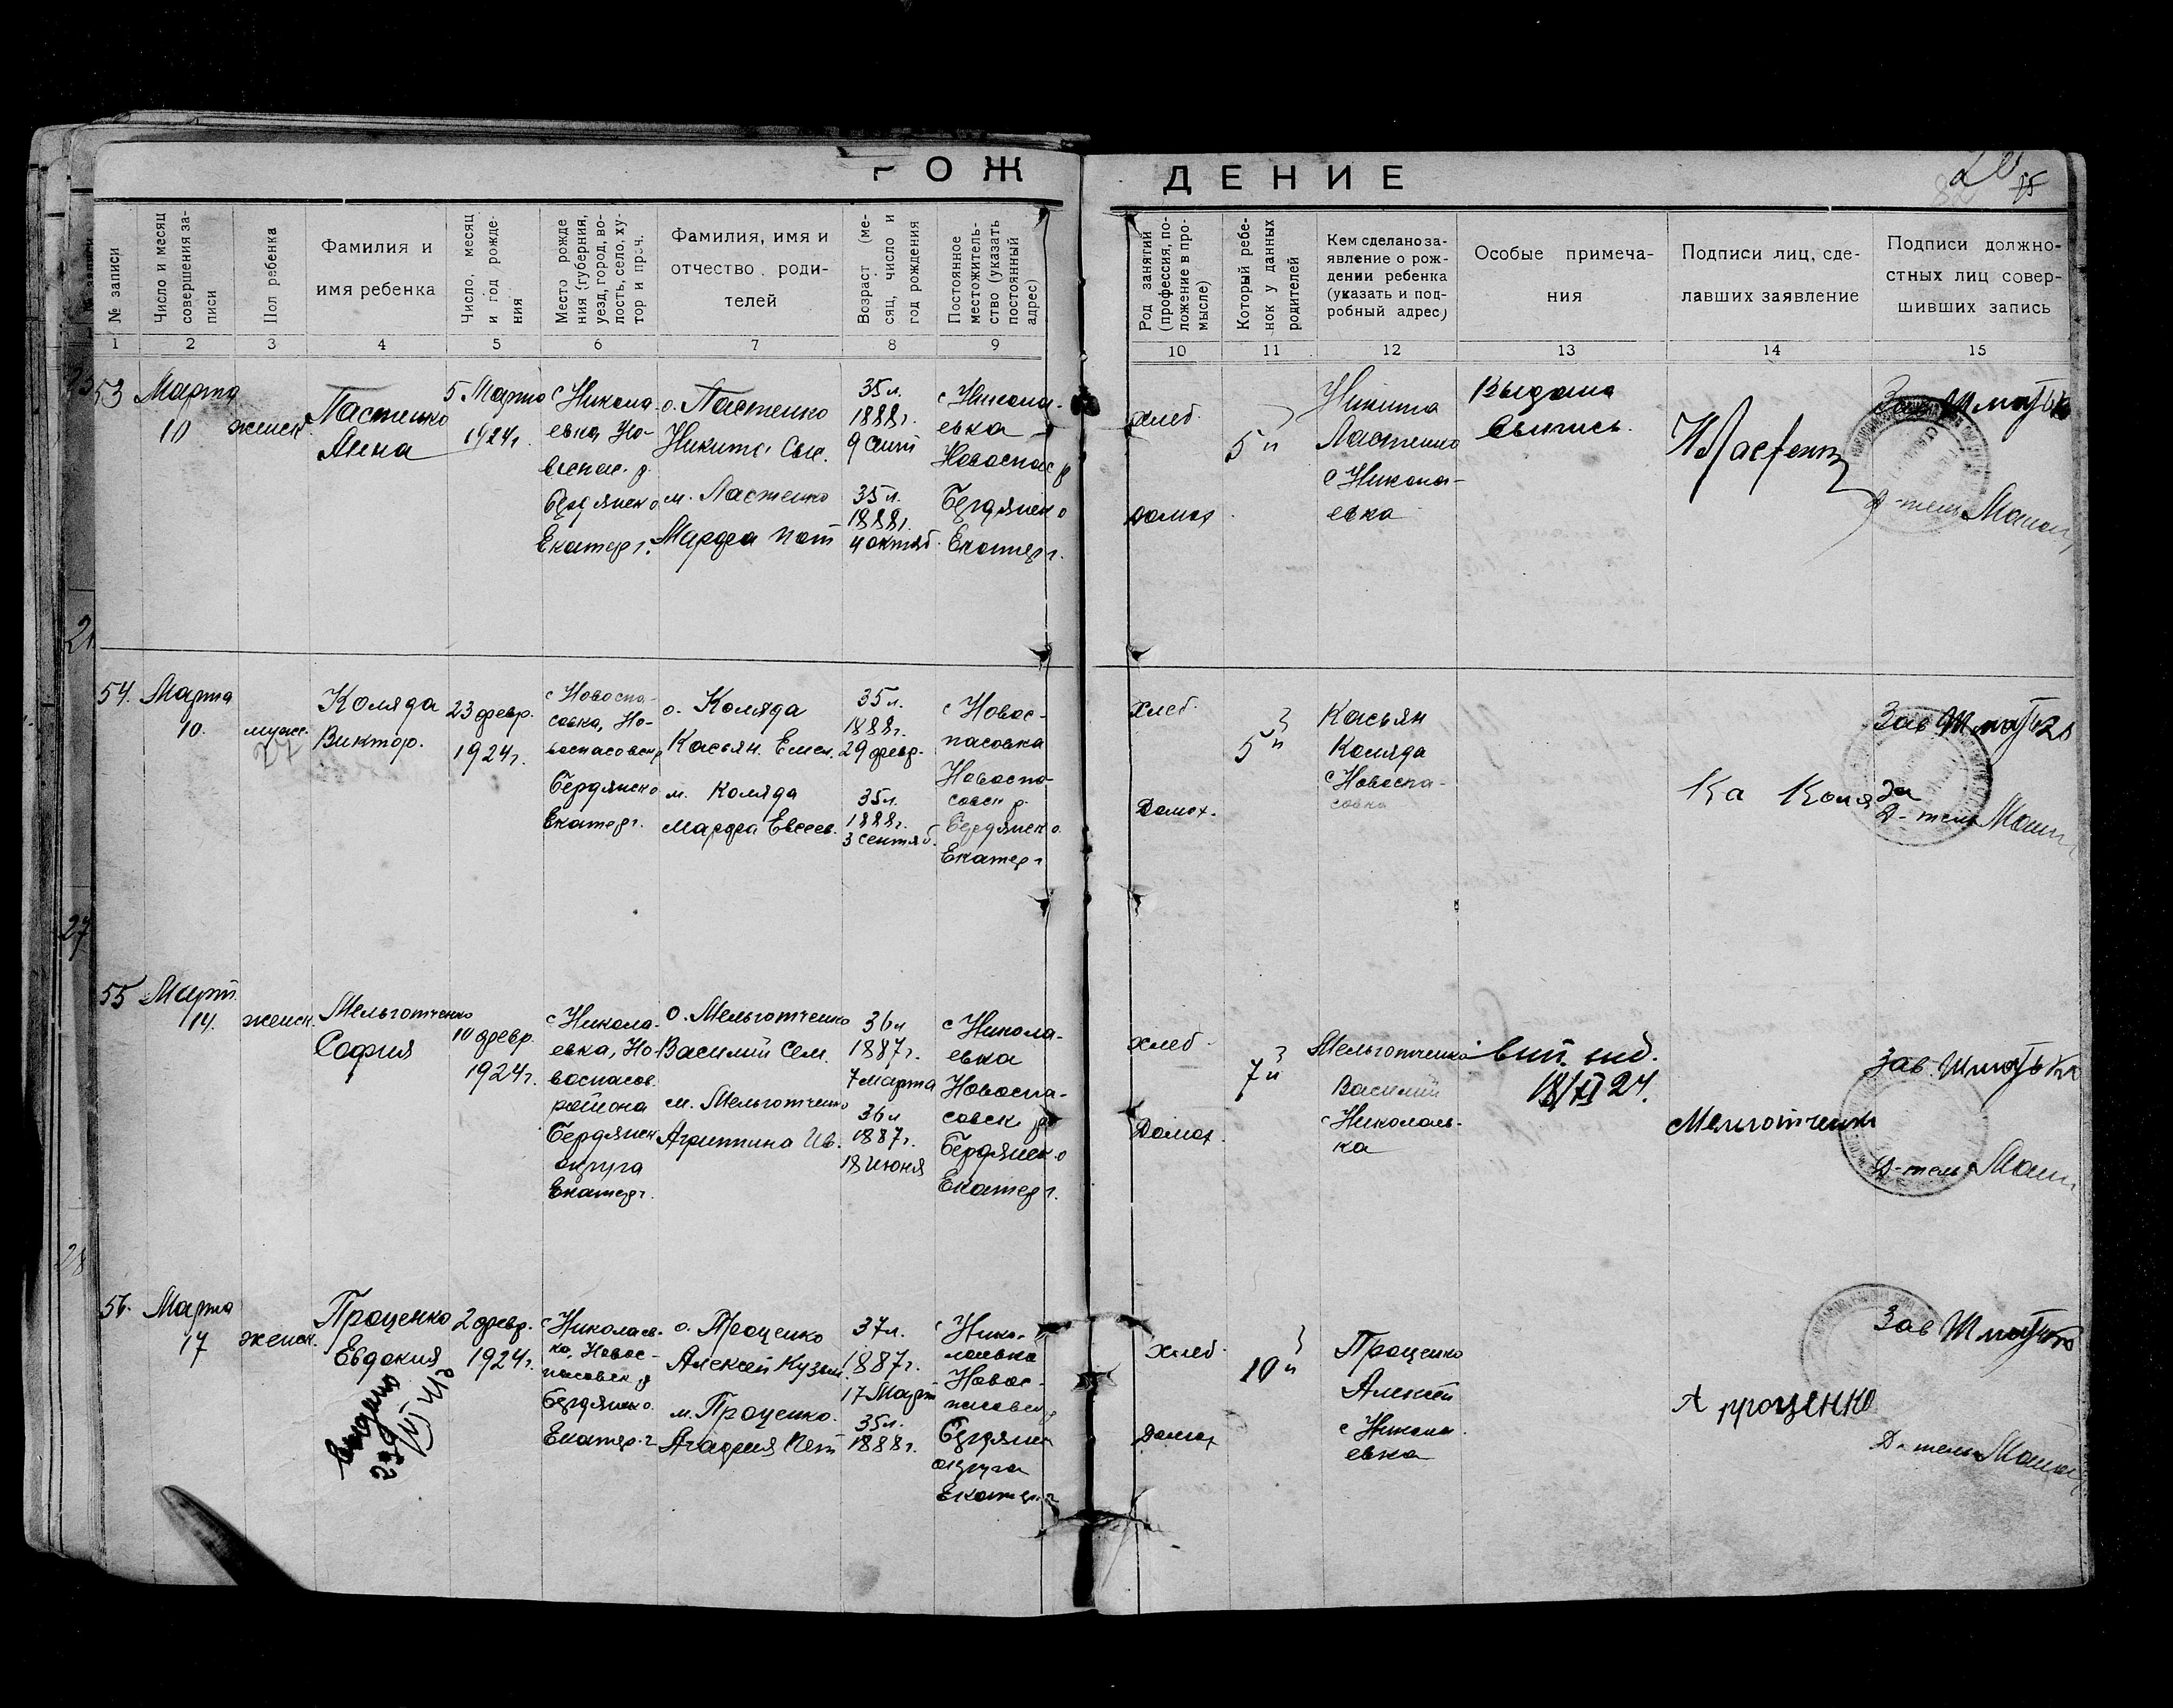 РОЖДЕНИЕ
№ записи
Число и месяц совершения записи
Пол ребенка
Фамилия и имя ребенка
Число, месяц и год рождения
Место рождения (губерния, уезд, город, волость, село, хутор и проч.
Фамилия, имя и отчество родителей
Возраст (месяц, число и год рождения
Постоянное местожительство (указать постоянный адрес)
Род занятий (профессия, положение в промысле)
Который ребенок у данных родителей
Кем сделано заявление о рождении ребенка (указать и подробный адрес)
Особые примечания
Подписи лиц, сделавших заявление
Подписи должностных лиц совершивших запись
1 2 3 4 5 6 7 8 9 10 11 12 13 14 15
53
Марта
10
женск.
Пастенко
Анна
5 Марта
1924г.
с Никола-
евка, Но-
воспас. р
Бердянск о
Екатер г.
о. Ластенко
Никита
м. Ластенко
Марфа
35 л.
1888г.
35 л.
1888г.
4 октяб.
с Никола-
евка
Новоспас р
Бердянск о
Екатер г.
хлеб.
домох
5й
Никита
Ластенко
с Никола-
евка
Выдана
выпись.
Зав
Д-тель
54.
Марта
10.
мужс.
27
Коляда
Виктор.
23 февр.
1924г.
с Новоспа-
совка, Но-
воспасовск р
Бердянск о
Екатер г.
о. Коляда
Касьян Емел.
м. Коляда
Марфа Евсеев.
35 л.
1888г.
29 февр.
35 л.
1888г.
3 сентяб.
с Новос-
пасовка
Новоспа-
совск р.
Бердянск о.
Екатер г.
хлеб.
Домох.
5й
Касьян
Коляда
с Новоспа-
совка
Ка Коляда
Зав
Д-тель
55
Март.
14.
женск.
Мельготченко
София
10 февр.
1924г.
с Никола-
евка, Но-
воспасов.
района
Бердянск
округа
Екатер г.
о. Мельготченко
Василий Сем.
м. Мельготченко
Агриппина Ив.
36 л
1887г.
7 марта
36 л
1887г.
18 июня
с Никола-
евка
Новоспа-
совск р
Бердянск о
Екатер г.
хлеб.
Домох.
7й
Мельготченко
Василий
с Николаев-
ка
18/XI 24.
Мельготченко
Зав
Д-тель
56.
Марта
17
женск.
Проценко
Евдокия
2 февр.
1924г.
с Николаев-
ка, Новос-
пасовск р
Бердянск о.
Екатер. г
о. Проценко
Алексей Кузьм.
м. Проценко.
Агафия Пет
37 л.
1887г.
17 Март
35 л.
1888г.
с Нико-
лаевка
Новос-
пасовск р
Бердянск
округа
Екатер. г
хлеб.
Домох
10й
Проценко
Алексей
с Никола-
евка
А проценко
Зав
Д-тель